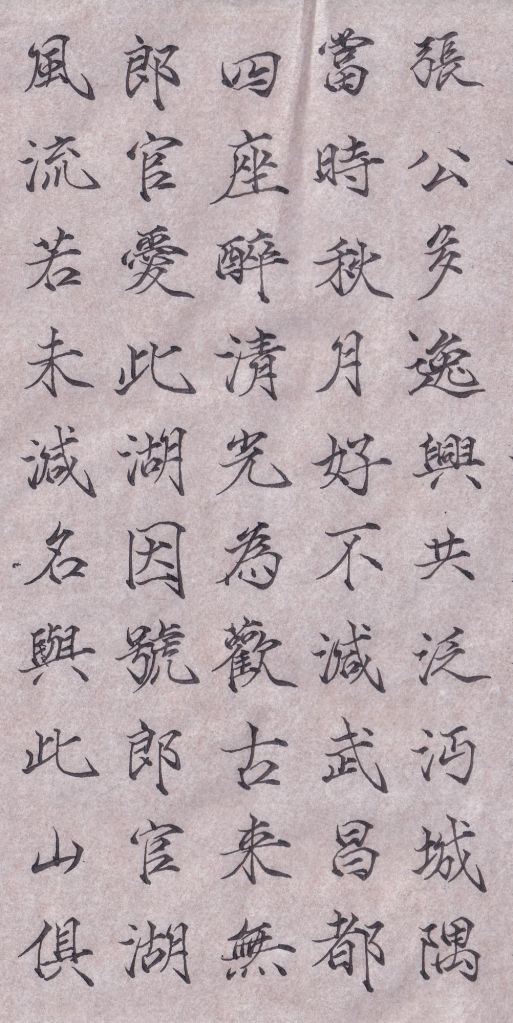 張公多逸興共泛沔城隅
當時秋月好不減武昌都
四座醉清光為歡古來無
郎官愛此湖因號郎官湖
風流若未減名與此山俱